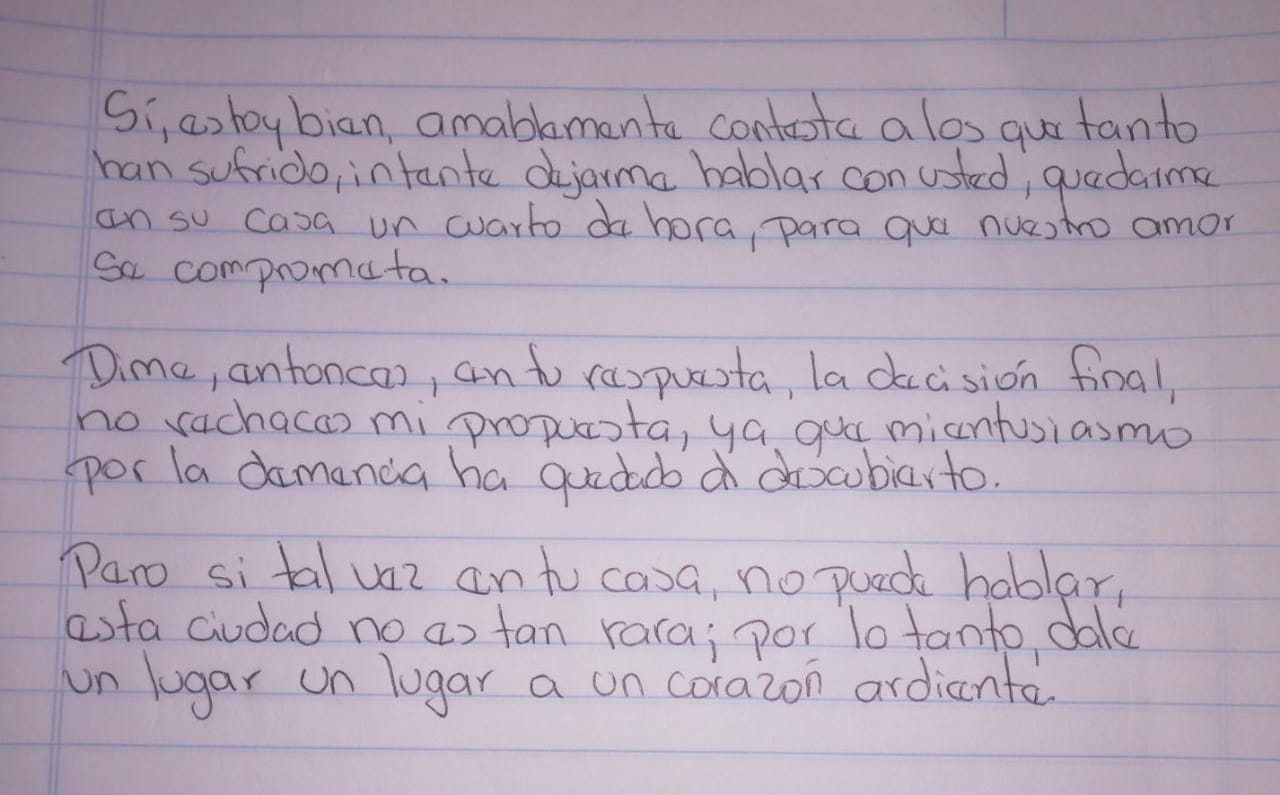 Si, estoy bien, amablemente contesta a los que tanto
han sufrido, intente dejarme hablar con usted, quedarme
en su casa un cuarto de hora, para que nuestro amor
se comprometa.
Dime, entonces, en tu respuesta, la decisión final,
no rechaces mi propuesta, ya que mi entusiasmo
por la demencia ha quedado al descubierto.
Pero si tal vez en tu casa, no puede hablar,
esta ciudad no es tan rara; por lo tanto, dale
un lugar un lugar a un corazón ardiente.